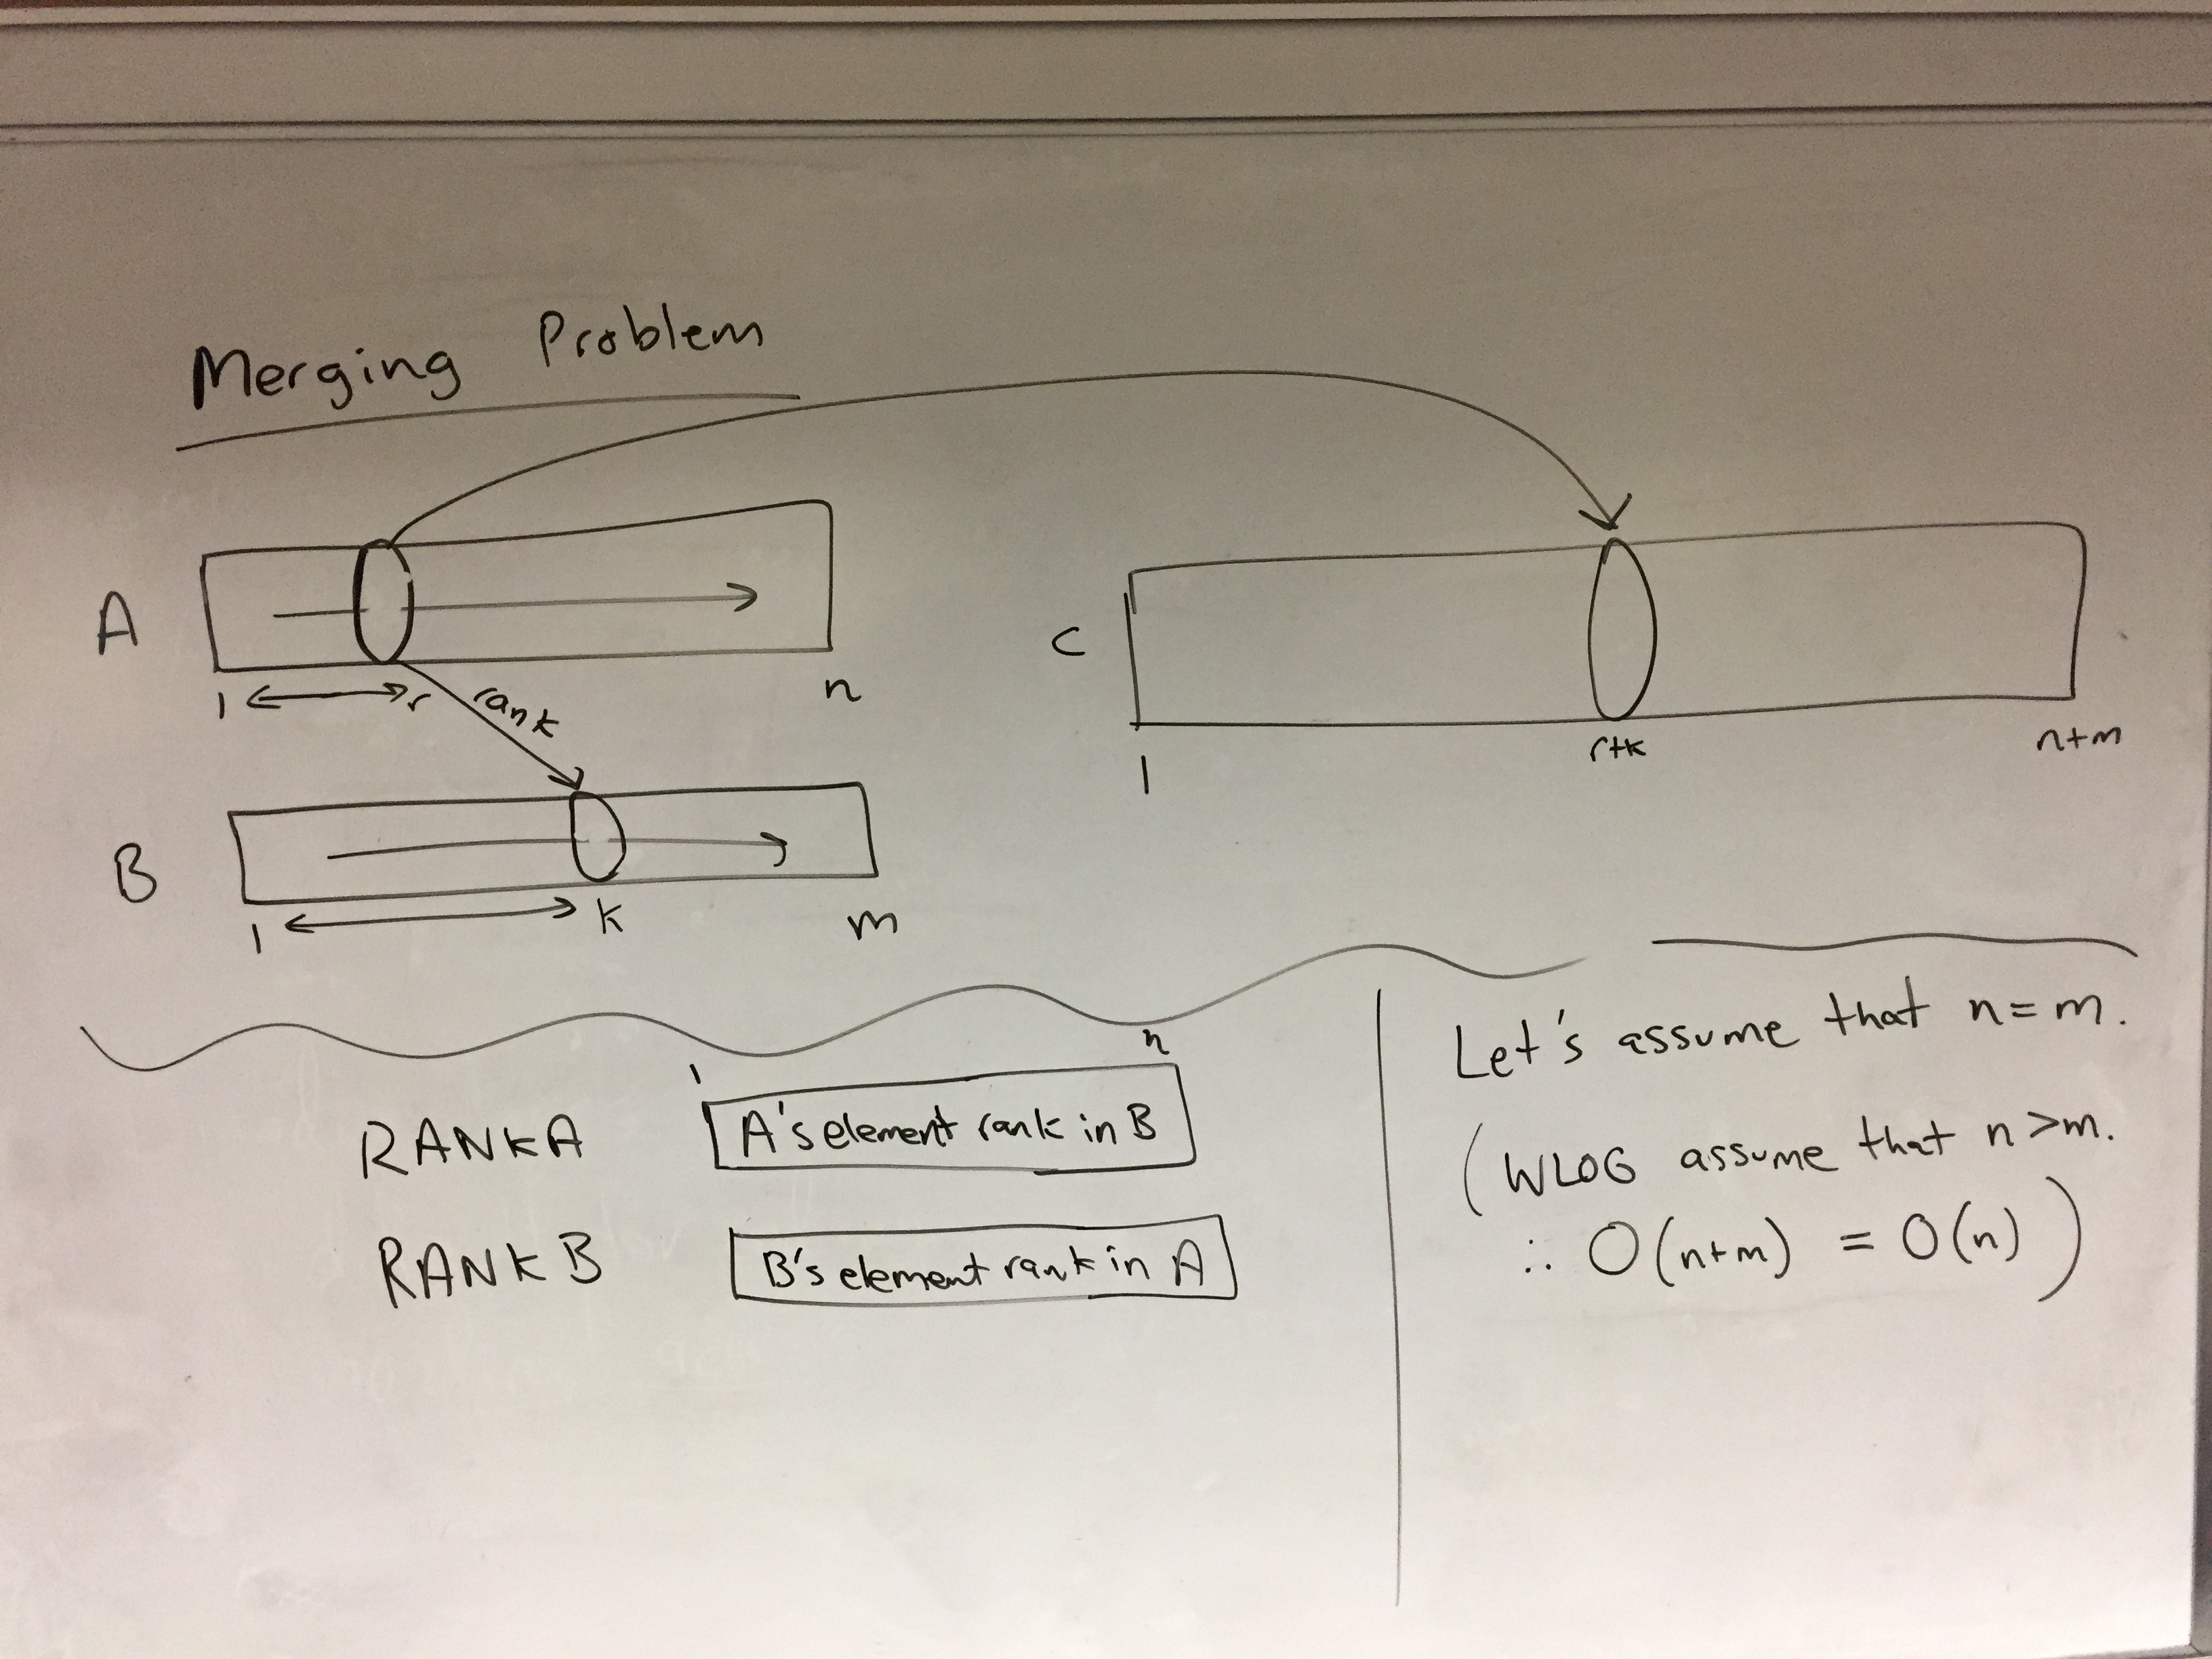 Merging Problem
A
1 r n
rank
B
1 k m
C
1 r+k n+m
1 n
RANKA A's element rank in B
RANKB B's element rank in A
Let's assume that n=m.
(WLOG assume that n>m.
∴ O(n+m) = O(n))